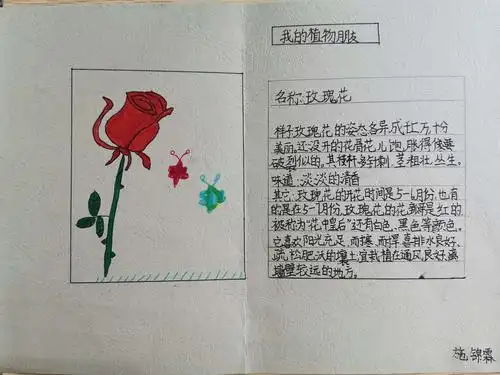 我的植物朋友
名称:玫瑰花
样子:玫瑰花的姿态各异,成千上万,十分
美丽,还没开的花骨朵儿饱胀得像要
破裂似的。其枝杆多针刺,茎粗壮,丛生。
味道:淡淡的清香
其它:玫瑰花的开花时间是5-6月份,也有
的是在5-7月份,玫瑰花的花都是红的
被称为"花中皇后"还有白色、黑色等颜色。
它喜欢阳光充足,耐寒、耐旱,喜排水良好、
疏松肥沃的壤土,宜栽植在通风良好、离
墙壁较远的地方。
施锦霖